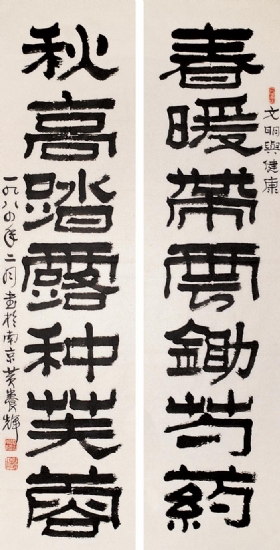 文明與健康
春暖帶雲鋤芍藥
秋高踏露种芙蓉
一九八四年二月書於南京黄養輝